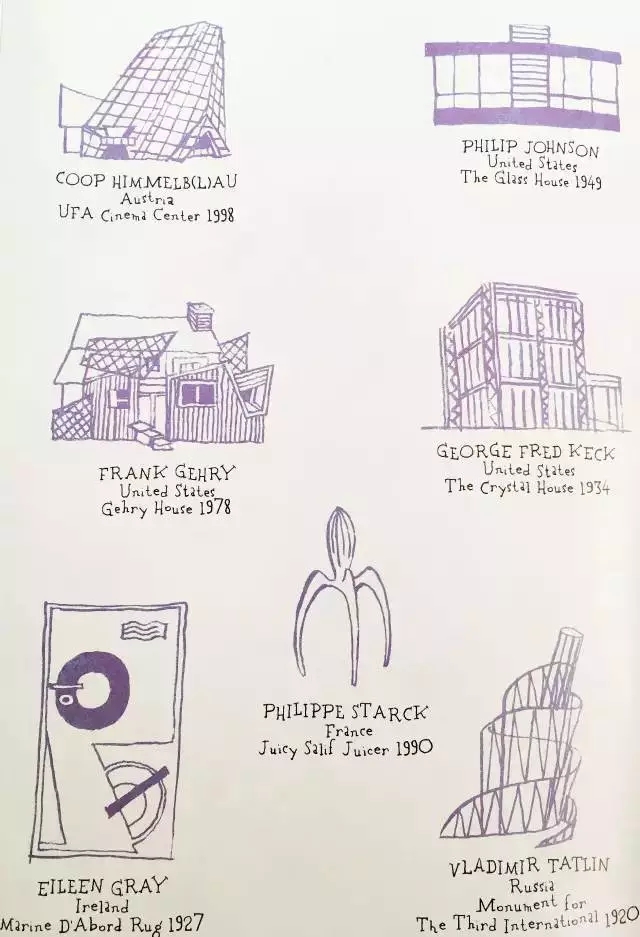 COOP HIMMELB(L)AU
Austria
UFA Cinema Center 1998
PHILIP JOHNSON
United States
The Glass House 1949
FRANK GEHRY
United States
Gehry House 1978
GEORGE FRED KECK
United States
The Crystal House 1934
PHILIPPE STARCK
France
Juicy Salif Juicer 1990
EILEEN GRAY
Ireland
Marine D'Abord Rug 1927
VLADIMIR TATLIN
Russia
Monument for
The Third International 1920